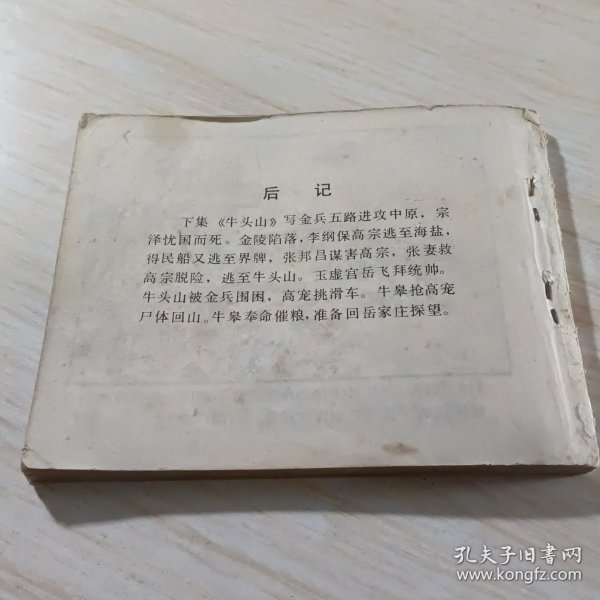 后记
下集《牛头山》写金兵五路进攻中原，宗
泽忧国而死。金陵陷落，李纲保高宗逃至海盐，
得民船又逃至界牌，张邦昌谋害高宗，张妻救
高宗脱险，逃至牛头山。玉虚宫岳飞拜统帅。
牛头山被金兵围困，高宠挑滑车。牛皋抢高宠
尸体回山。牛皋奉命催粮，准备回岳家庄探望。
孔夫子旧书网
www.kongfz.com